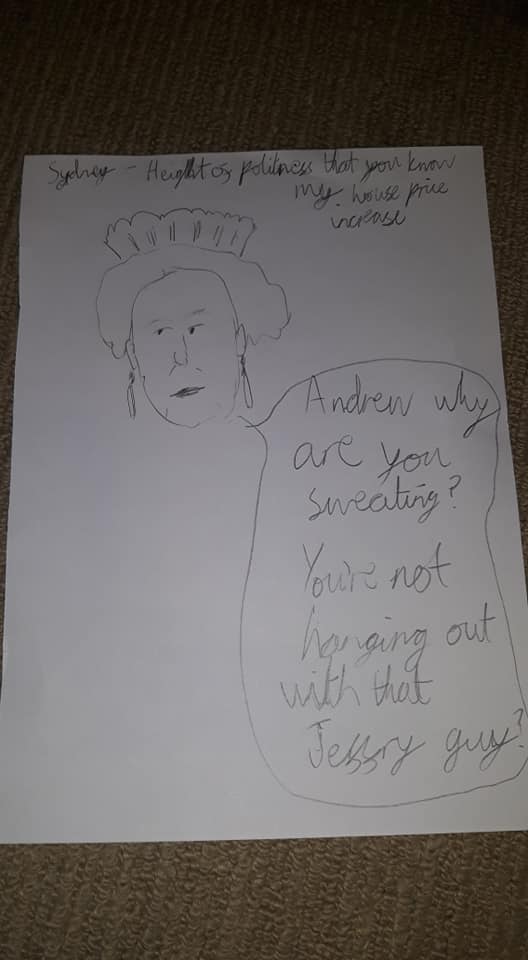 Sydney - Height of politness that you know
my house price
increase
Andrew why
are you
sweating?
You're not
hanging out
with that
Jeffry guy?